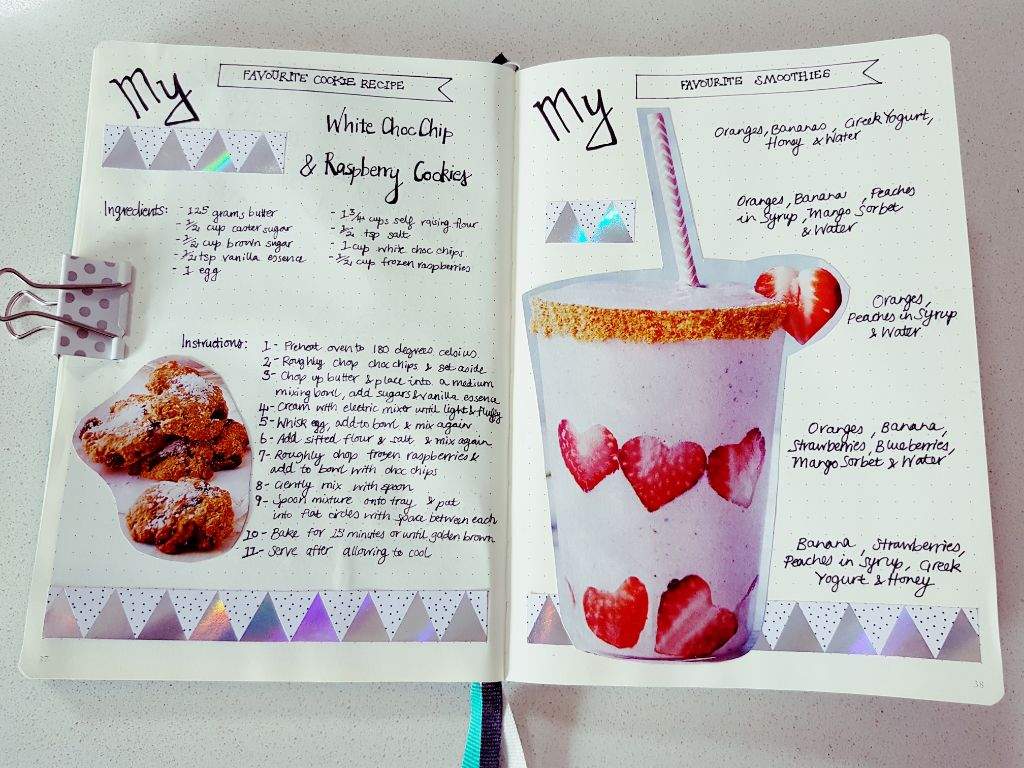 My
FAVOURITE COOKIE RECIPE
White Choc Chip
& Raspberry Cookies
Ingredients:
- 125 grams butter
- 1/2 cup caster sugar
- 1/2 cup brown sugar
- 1/2 tsp vanilla essence
- 1 egg
- 1 3/4 cups self raising flour
- 1/2 tsp salt
- 1 cup white choc chips
- 1/2 cup frozen raspberries
Instructions:
1- Preheat oven to 180 degrees celsius.
2- Roughly chop choc chips & set aside
3- Chop up butter & place into a medium
mixing bowl, add sugars & vanilla essence
4- Cream with electric mixer until light & fluffy
5- Whisk egg, add to bowl & mix again
6- Add sifted flour & salt & mix again
7- Roughly chop frozen raspberries &
add to bowl with choc chips
8- Gently mix with spoon
9- Spoon mixture onto tray & pat
into flat circles with space between each
10- Bake for 15 minutes or until golden brown
11- Serve after allowing to cool
37
My
FAVOURITE SMOOTHIES
Oranges, Bananas, Greek Yogurt,
Honey & Water
Oranges, Banana, Peaches
in Syrup, Mango Sorbet
& Water
Oranges,
Peaches in Syrup
& Water
Oranges, Banana,
Strawberries, Blueberries,
Mango Sorbet & Water
Banana, Strawberries,
Peaches in Syrup, Greek
Yogurt & Honey
38